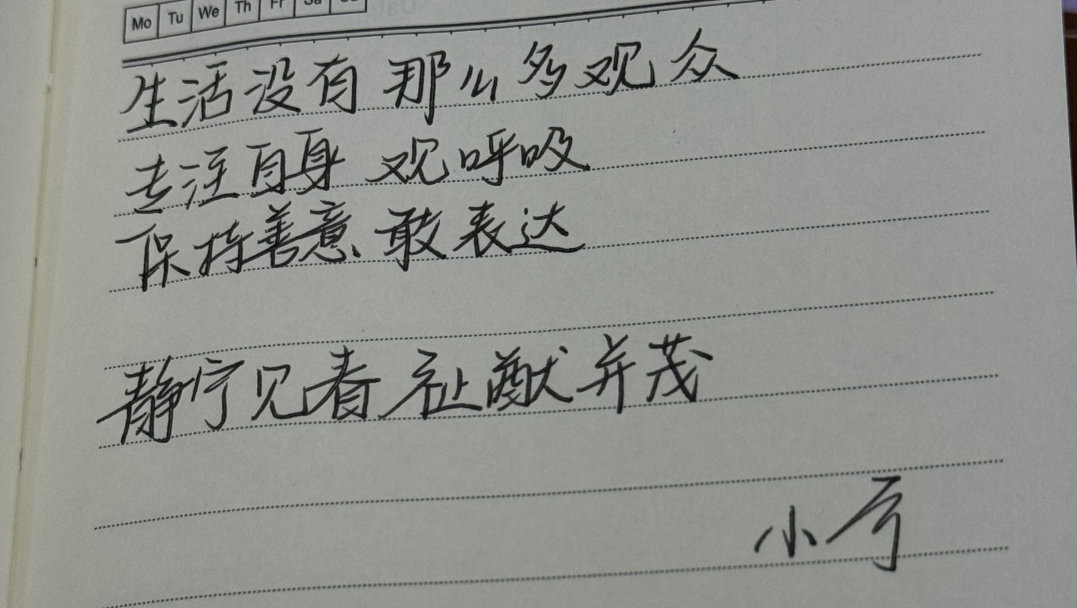 Mo Tu We Th Fr Sa Su
生活没有那么多观众
专注自身 观呼吸
保持善意、敢表达
静宁见春 祉猷并茂
小亏